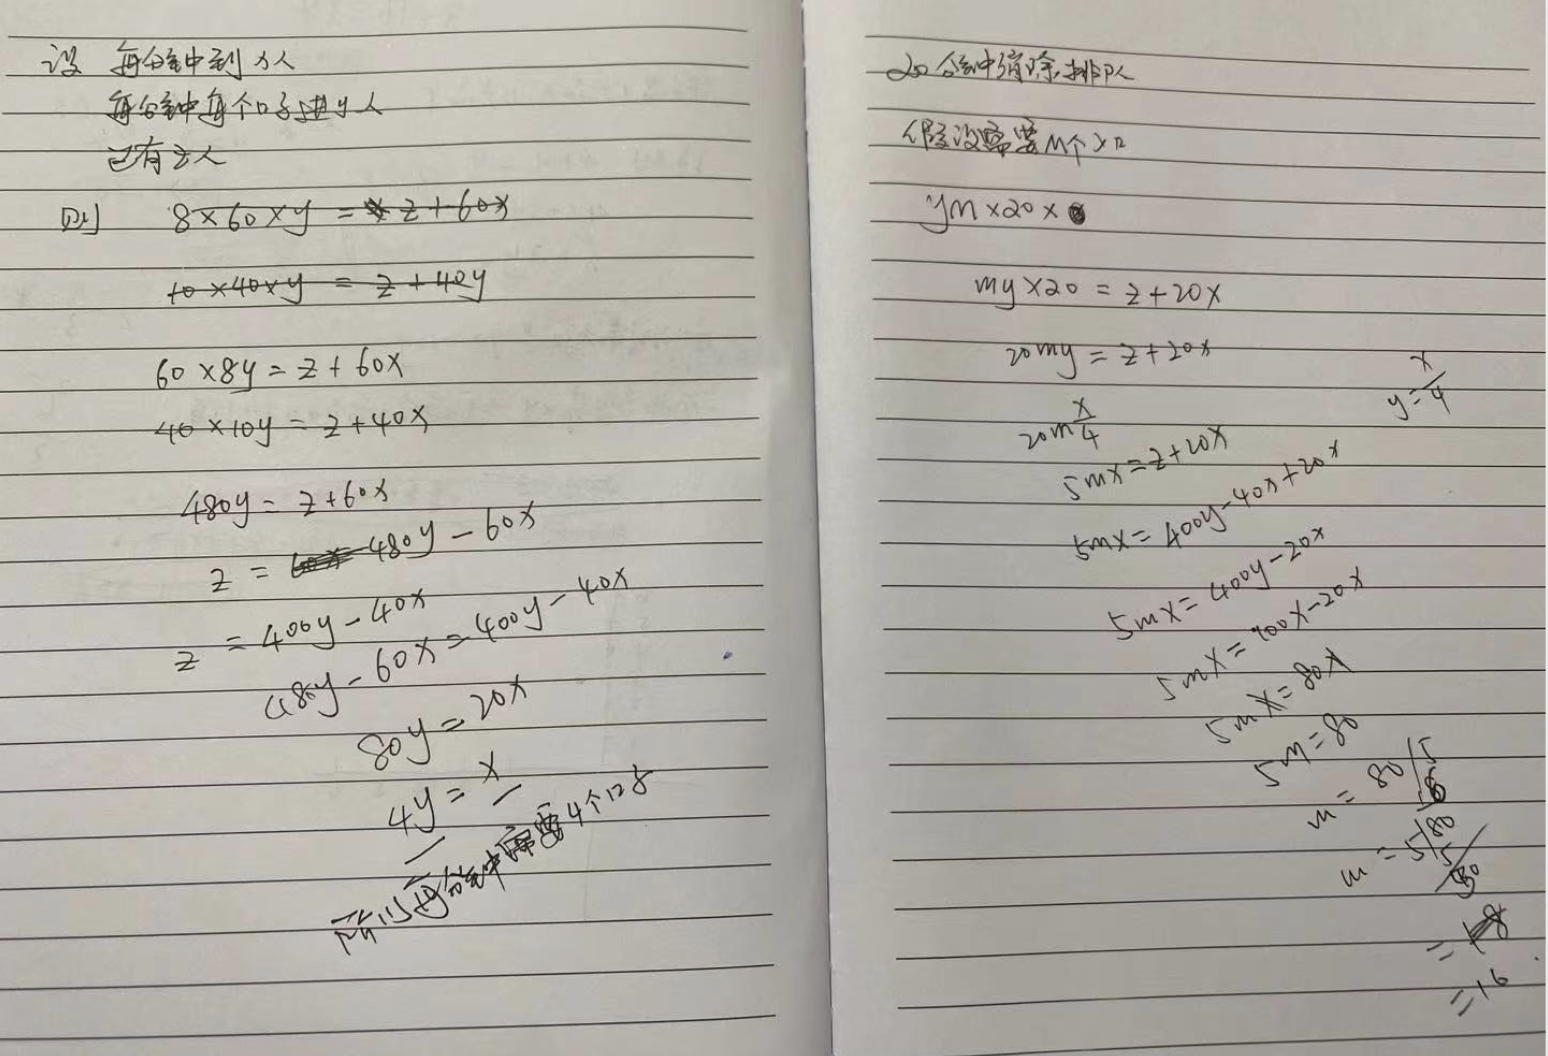 设 每分钟到x人
每分钟每个口子进y人
已有z人
则 8×60×y = z+60x
10×40×y = z+40y
60×8y = z+60x
40×10y = z+40x
480y = z+60x
z = 480y-60x
z = 400y-40x
480y-60x=400y-40x
80y=20x
4y=x
所以每分钟需要4个口子
20分钟消除排队
假设需要M个入口
ym×20×
my×20 = z+20x
20my = z+20x
y=x/4
20m x/4
5mx=z+20x
5mx=400y-40x+20x
5mx=400y-20x
5mx=100x-20x
5mx=80x
5m=80
m = 80/5
m =
=
=16